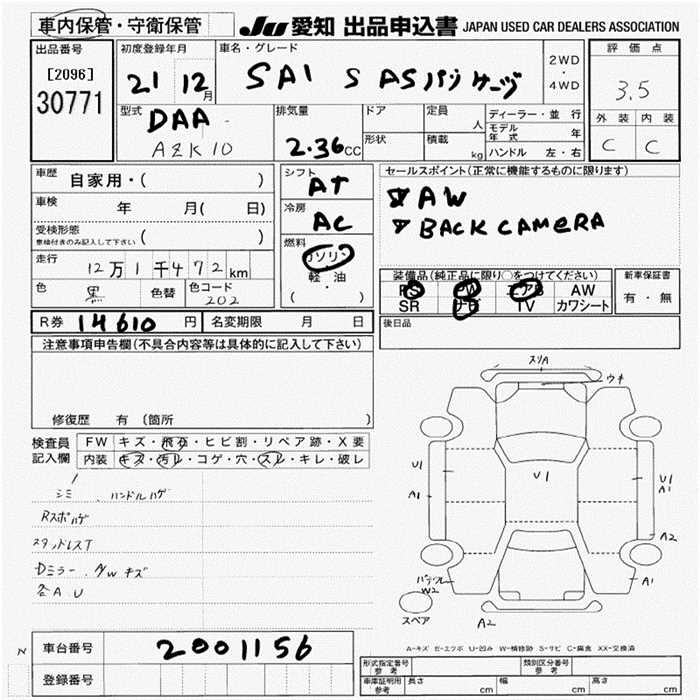 車内保管・守衛保管
JU 愛知 出品申込書 JAPAN USED CAR DEALERS ASSOCIATION
出品番号
[2096]
30771
初度登録年月
21 12月
車名・グレード
SAI S ASパッケージ
2WD
・
4WD
評価点
3.5
外装 内装
C C
型式
DAA
AZK10
排気量
2.36cc
ドア
形状
定員
人
積載
kg
ディーラー・並行
モデル年式 年
ハンドル 左・右
車歴 自家用・( )
車検 年 月( 日)
受検形態
車検付きのみ記入して下さい ( )
走行 12万1千472km
色 黒 色替 色コード 202
シフト
AT
冷房
AC
燃料
ガソリン
軽・油
( ・ )
セールスポイント(正常に機能するものに限ります)
AW
BACK CAMERA
装備品(純正品に限り○をつけてください)
PS PW エアB AW
SR ナビ TV カワシート
新車保証書
有・無
R券 14610円 名変期限 月 日
後日品
注意事項申告欄(不具合内容等は具体的に記入して下さい)
修復歴 有 (箇所 )
検査員
記入欄
FW キズ・飛石・ヒビ割・リペア跡・X要
内装 キズ・汚レ・コゲ・穴・スレ・キレ・破レ
シミ . ハンドルハゲ
Rスポハゲ
スタッドレスT
Dミラー . キズ
各A U
スリA
ウキ
U1
A1
U1
U1
A1
A2
W2
A1
A2
スペア
A-キズ E-エクボ U-凹み W-補修跡 S-サビ C-腐食 XX-交換済
N
車台番号 2001156
登録番号
形式指定番号
参考
類別区分番号
参考
車庫証明用
参考
長さ cm 幅 cm 高さ cm